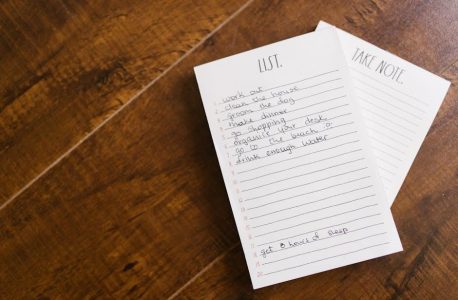 LIST.
work out
clean the house
groom the dog
make dinner
go shopping
organise your desk
go to the beach
drink enough water
get 8 hours of sleep
TAKE NOTE.